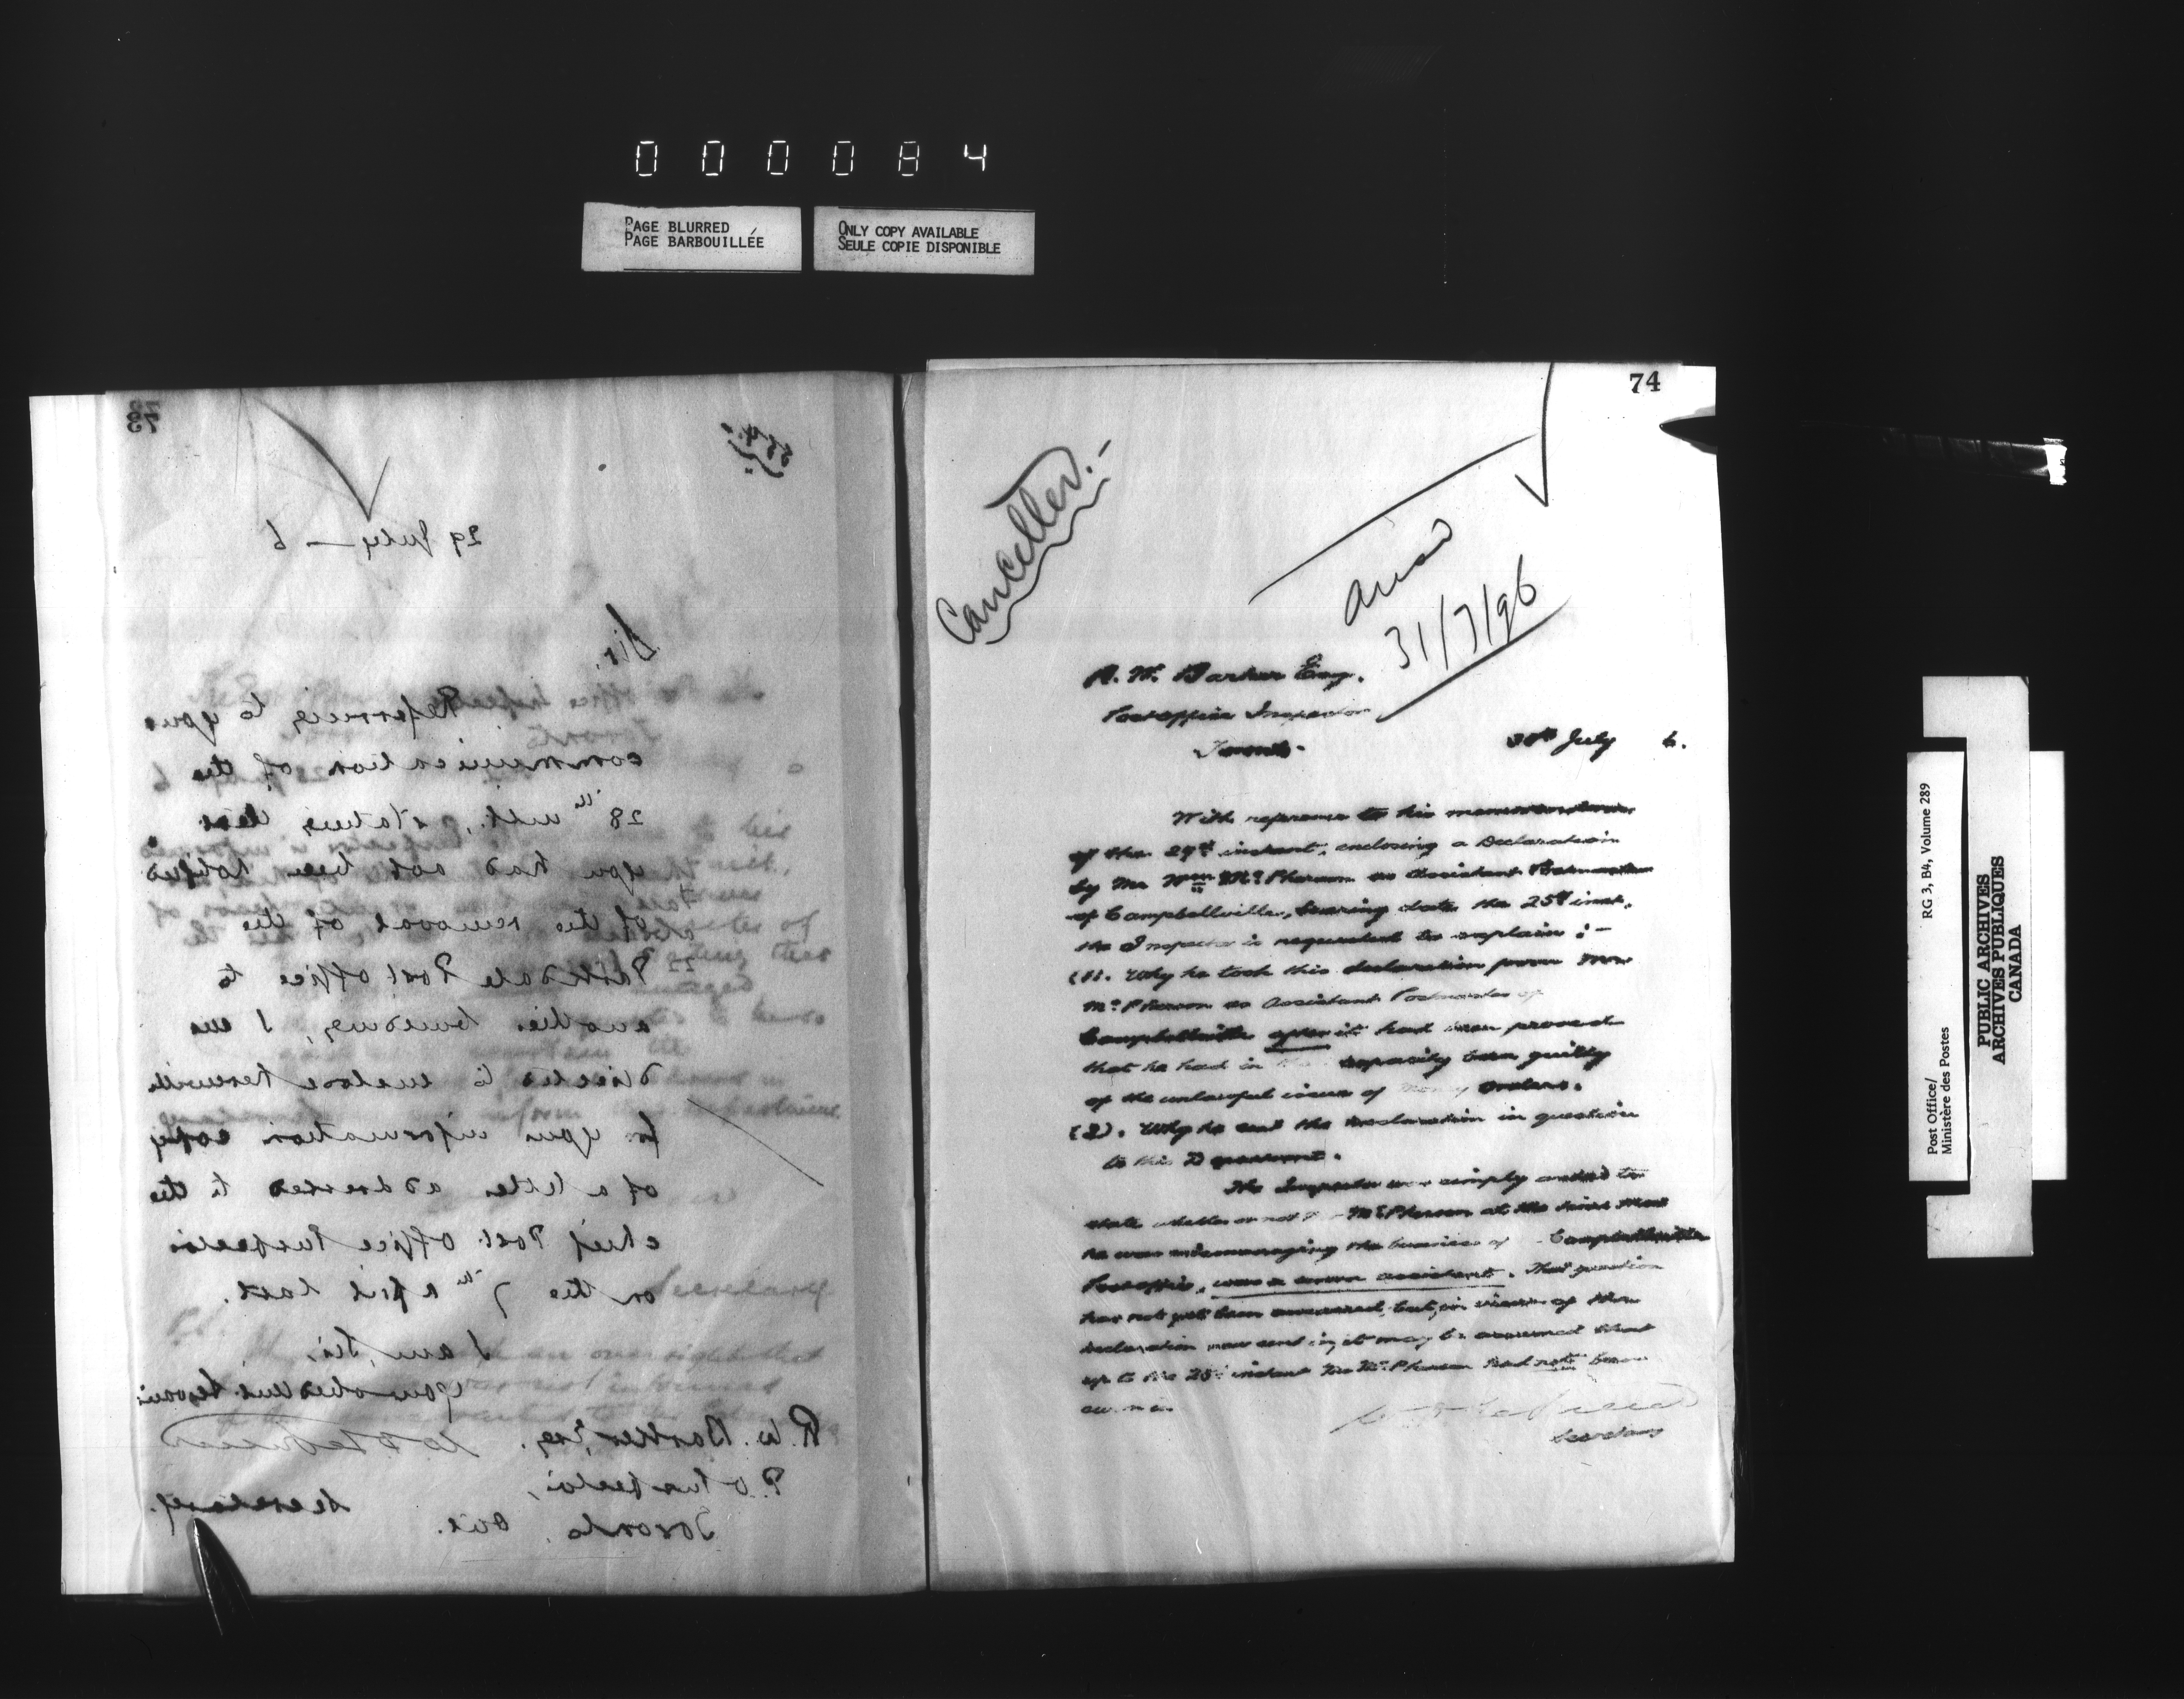 000084
PAGE BLURRED
PAGE BARBOUILLÉE
ONLY COPY AVAILABLE
SEULE COPIE DISPONIBLE
73
29 July — 6
Sir,
Referring to your
communication of the
28th ult., stating that
you had not been notified
of the removal of the
Parkdale Post Office to
another building, I am
directed to enclose herewith
for your information copy
of a letter addressed to the
Chief Post Office Inspector
on the 7th April last.
I am, Sir,
Your obedient Servant
R. W. Barker, Esq.
P.O Inspector,
Toronto, Ont.
Secretary.
74
Cancelled.-
31/7/96
R. W. Barker Esq.
Post office Inspector
Toronto.
30th July 6.
With reference to his memorandum
of the 29th instant, enclosing a Declaration
by Mr Wm McPherson as Assistant Postmaster
of Campbellville, bearing date the 25th inst.
the Inspector is requested to explain :-
(1). Why he took this declaration from Mr
McPherson as Assistant Postmaster of
Campbellville after it had been proved
that he had in capacity been guilty
of the unlawful issue of Money Orders.
(2). Why he sent the declaration in question
to this Department.
The Inspector was simply asked to
state whether or not McPherson at the time that
he was mismanaging the business of Campbellville
Post office, was a sworn assistant. That question
has not yet been answered, but, in view of the
declaration now sent in, it may be assumed that
up to the 25th instant Mr McPherson had not been
sworn in.
Secretary
Post Office/
Ministère des Postes
RG 3, B4, Volume 289
PUBLIC ARCHIVES
ARCHIVES PUBLIQUES
CANADA